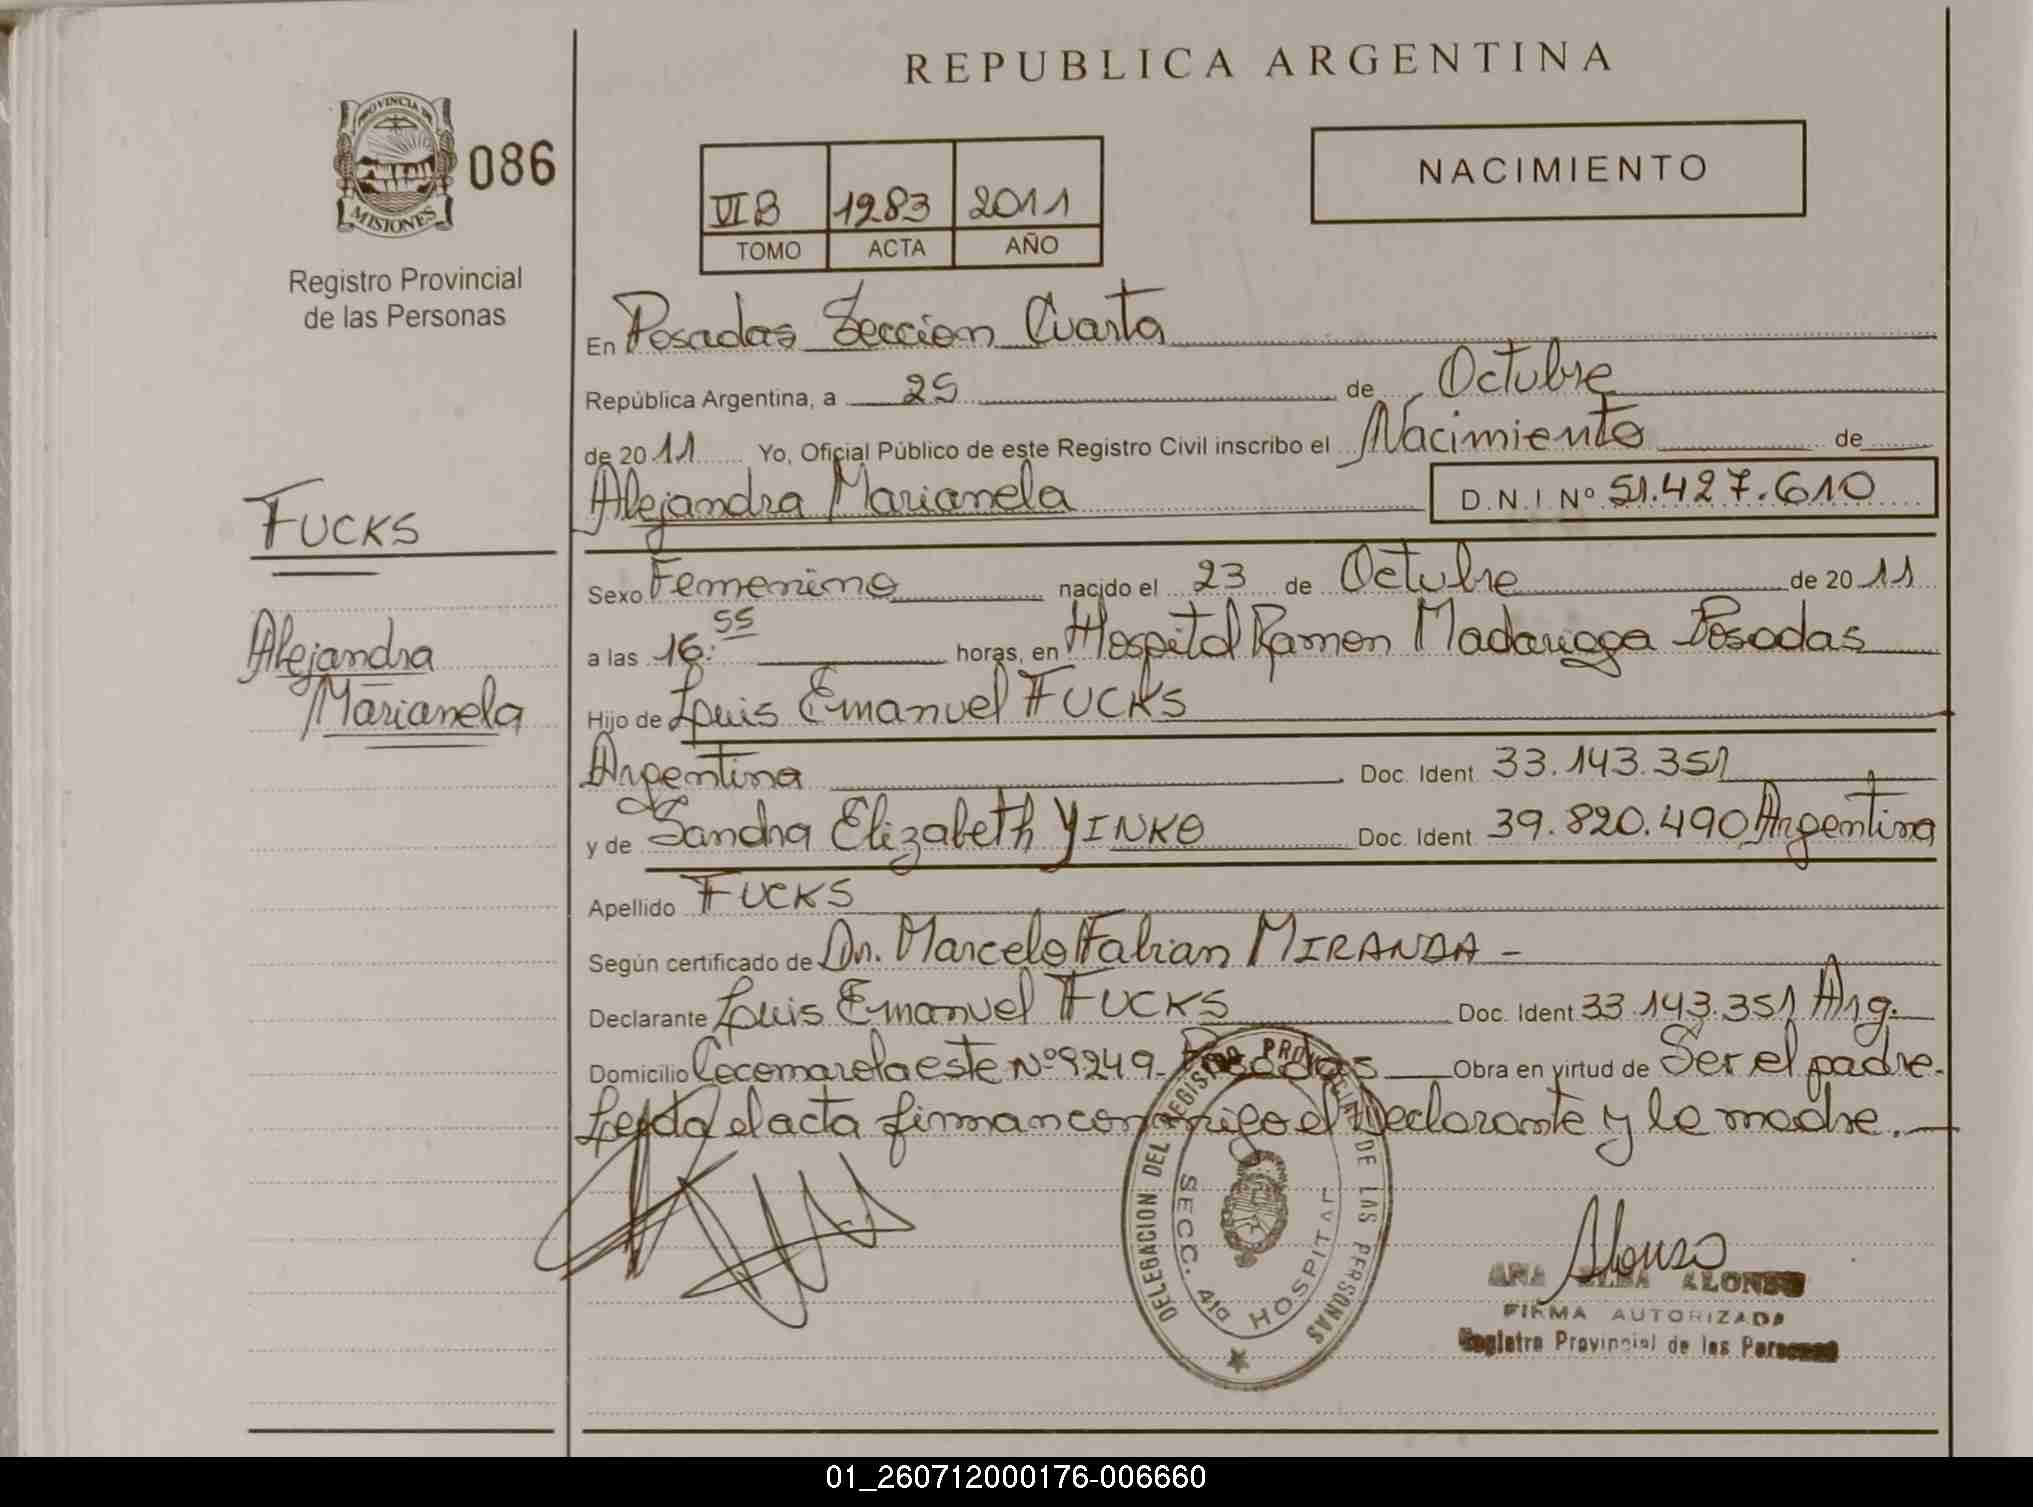 REPUBLICA ARGENTINA
PROVINCIA DE
MISIONES
086
Registro Provincial
de las Personas
VI B 1283 2011
TOMO ACTA AÑO
NACIMIENTO
En Posadas Seccion Cuarta
República Argentina, a 25 de Octubre
de 2011 Yo, Oficial Público de este Registro Civil inscribo el Nacimiento de
Alejandra Marianela D.N.I. Nº 51.427.610
FUCKS
Alejandra
Marianela
Sexo Femenino nacido el 23 de Octubre de 2011
a las 16:55 horas, en Hospital Ramon Madariaga Posadas
Hijo de Luis Emanuel FUCKS
Argentina Doc. Ident. 33.143.351
y de Sandra Elizabeth YINKO Doc. Ident. 39.820.490 Argentina
Apellido FUCKS
Según certificado de Dr. Marcelo Fabian MIRANDA -
Declarante Luis Emanuel FUCKS Doc. Ident. 33.143.351 Arg.
Domicilio Cocomarola este Nº 9249 - Posadas Obra en virtud de Ser el padre.
Leyda el acta firman conmigo el Declarante y la madre.
DELEGACION DEL REGISTRO PROVINCIAL DE LAS PERSONAS
SECC. 4ta HOSPITAL
Alonso
ANA ELBA ALONSO
FIRMA AUTORIZADA
Registro Provincial de las Personas
01_260712000176-006660